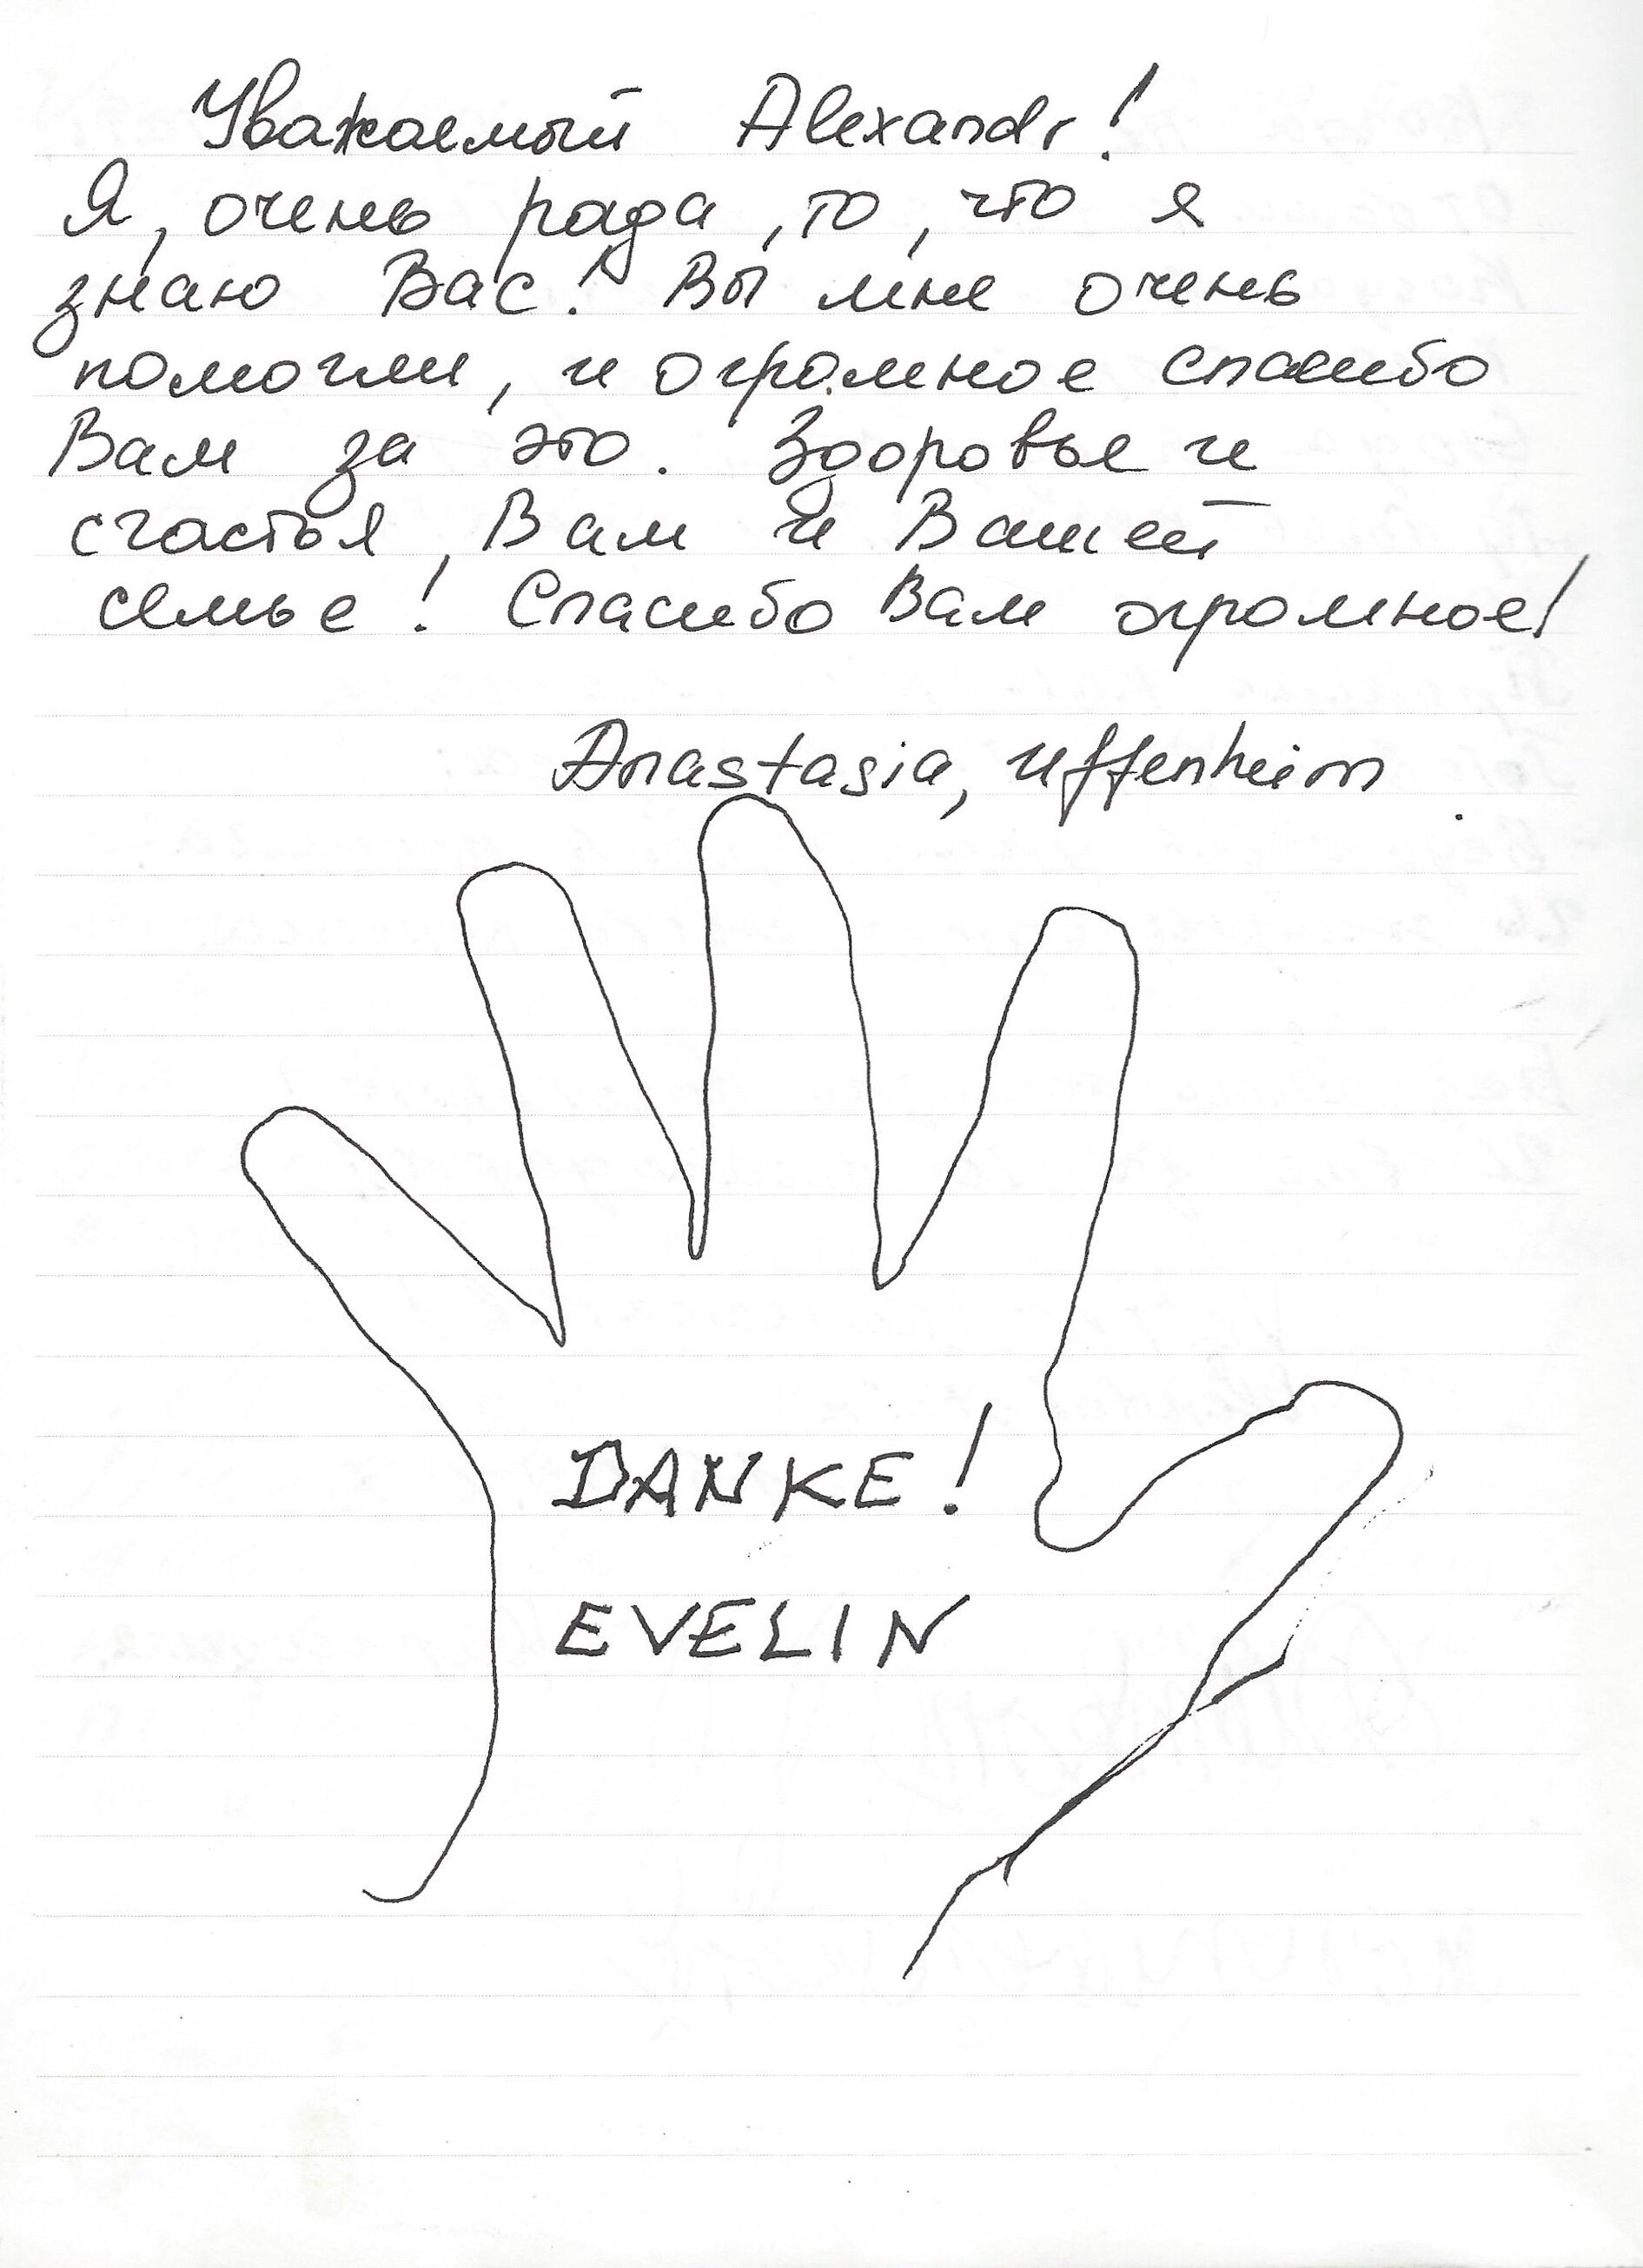 Уважаемый Alexandr!
Я, очень рада, то, что я
знаю Вас! Вы мне очень
помогли, и огромное спасибо
Вам за это. Здоровье и
счастья, Вам и Вашей
семье! Спасибо Вам огромное!
Anastasia, Uffenheim.
DANKE!
EVELIN